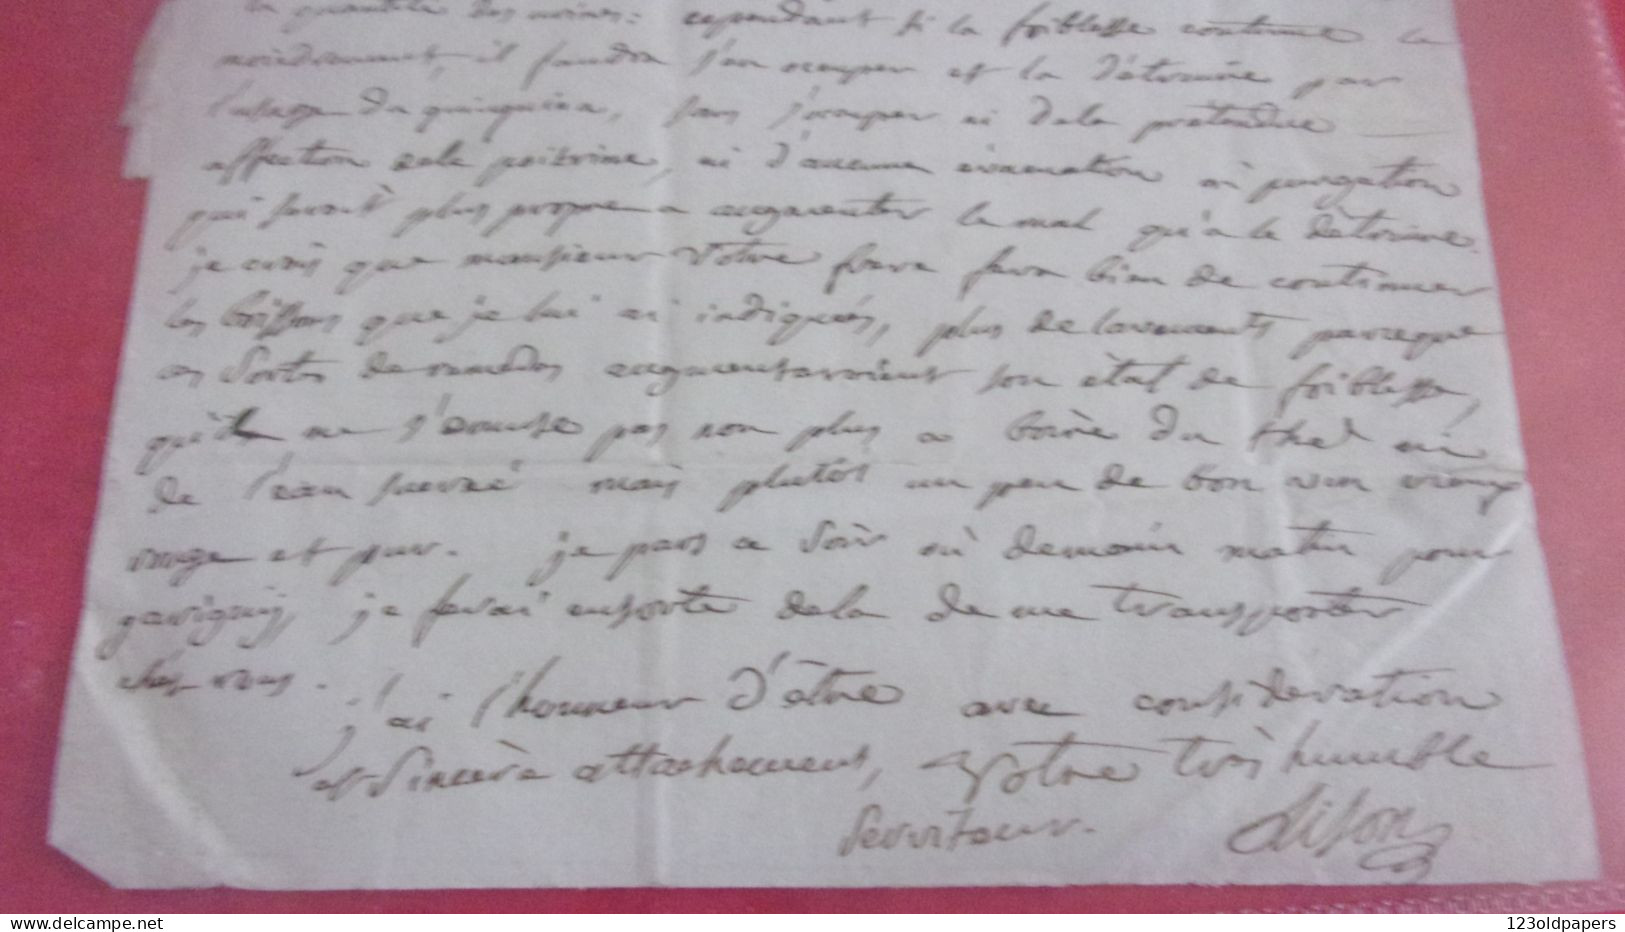 la quantité des moines: cependant si la foiblesse continue le
moindrement, il faudra s'en occuper et la détruire par
l'usage du quinquina, sans s'occuper ni dela prétendue
affection dela poitrine, ni d'aucune évacuation ni purgation
qui seroit plus propre a augmenter le mal qu'a le détruire.
je crois que monsieur votre frere fera bien de continuer
les boissons que je lui ai indiquées, plus de lavements parceque
ces sortes de remedes augmenteroient son état de foiblesse,
qu'il ne s'amuse pas non plus a boire du thé ni
de l'eau sucrée mais plutôt un peu de bon vin vieux
rouge et pur. je pars ce soir où demain matin pour
je ferai ensorte dela de me transporter
chez vous.
j'ai l'honneur d'être avec considération
et sincère attachement, Votre très humble
Serviteur.
delcampe.net
123oldpapers